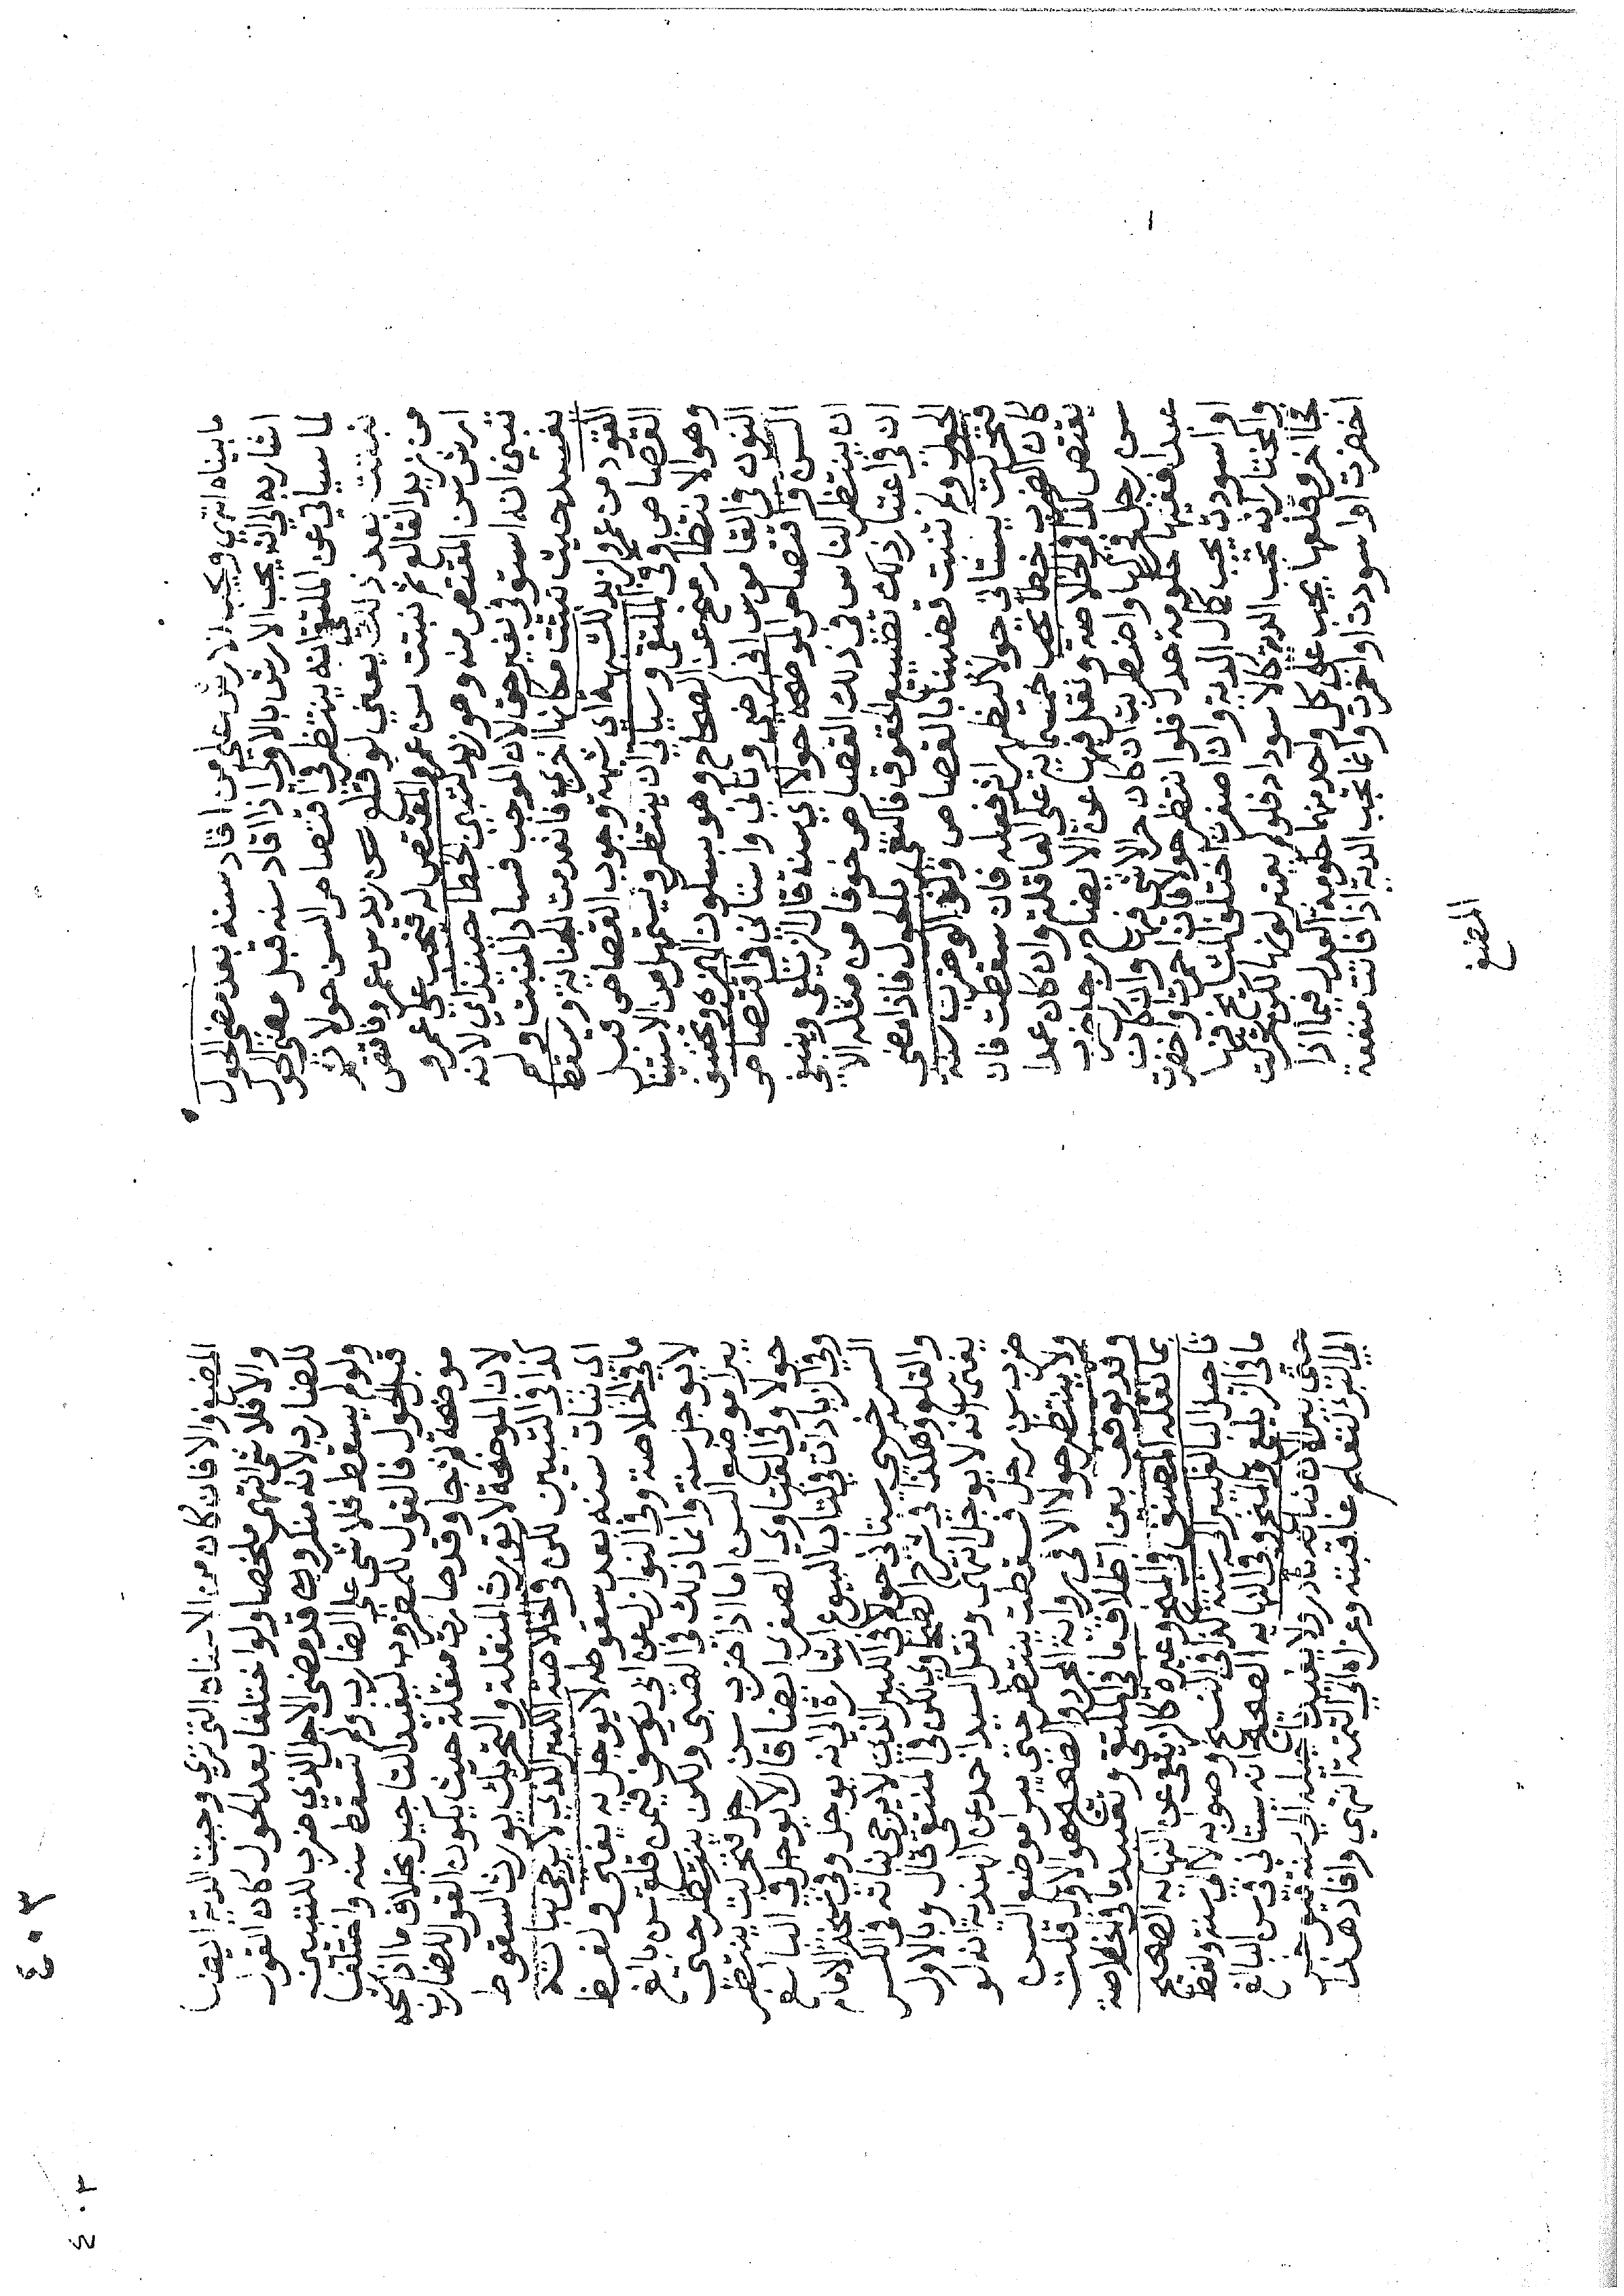 ما بيناه انتهى ويجب الارش على من اقاد سنه بعد مضي الحول
اشار به الى انه يجب الارش بالاولى اذا قاد سنه قبل مضي الحول
لما سيأتي عن الملتقى انه ينتظر في اقتصاص السن حولا ثم
نبتت بعد ذلك يعني لو قلع سن زيد من عمرو فاقتص
من زيد القالع ثم نبتت سن عمرو المقتص له فتجب على عمرو
ارش سن المقتص منه وهو زيد لتبين الخطا حينئذ اي لانه
تبين انه استوفى بغير حق لان الموجب فساد المنبت ولم
يفسد حيث نبتت مكانها اخرى فانعدمت الجناية وسقط
القود من عمرو لزيد للشبهة اي شبهة وجوب القصاص قبل
القصاص وفي الملتقى وسيأتي ان ينتظر ويستمهل من الاستيناء
وهو الانتظار منح عن الصحاح وهو بسكون الهمزة وتخفيف
النون في القاموس انى كرضى وتأنى واستأنى في اقتصاص
السن واقتصاص الموضحة حولا اي سنة قال الزيلعي وينبغي
ان ينتظر الياس في ذلك القصاص خوفا من مثله الا
ان في اعتبار ذلك تضييع الحقوق فاكتفى بالحول فاذا مضى
الحول ولم تنبت قضينا بالقصاص وكذا لو ضرب سنه
فتحركت يستأني حولا ليظهر اثر فعله فان سقطت فان
كان الضرب خطأ تجب خمسماية على العاقلة وان كان عمدا
يقتص كذا في الخلاصة ونقل فيها عن الايضاح رجل ضرب
سن رجل فحركها واضطربت ان كان حرا لا شي فيها وان كان
عبدا ففيها حكومة عدل فلو انتظر حولا فان احمرت او اخضرت
او اسودت يجب كمال الدية وان اصفرت اختلف المشايخ فيها
والمختار انه تجب الدية كالاسوداد فلو لم يتغير لونها لكن تحركت
فجا اخر وقلعها يجب على كل واحد منهما حكومة العدل فيما اذا
اخضرت او اسودت او احمرت وانما تجب الدية اذا فاتت منفعة
المضغ
٤٠٣
المضغ والا فان كان من الاسنان التي ترى وجبت الدية ايضا
والا فلا شي انتهى ملخصا ولو اختلفا بعد الحول كان القول
للضارب لانه منكر وقد مضى الاجل الذي ضرب للتبيين
ولو لم يسقط فلا شي على الضارب ولو سقط سنه واختلفا
قبل الحول فالقول للمضروب ليفيد التأجيل بخلاف ما اذا شجه
موضحة ثم جا وقد صارت منقلة حيث يكون القول للضارب
لان الموضحة لا تورث المنقلة والتحريك يورث السقوط
كذا في التبيين لكن في الخلاصة الكبير الذي لا يرجى نباته
اي نبات سنه بعد سقوطه لا يوجل به يفتى ولفظ
ما في الخلاصة وفي النوازل عن ابي يوسف فيمن قلع سن بالغ
لا يوجل سنة وانما ذلك في الصبي ولكن ينتظر حتى
يبرأ موضع السن اما اذا ضرب سن رجل فتحركت ينتظر
حولا وفي الفتاوى الصغرى ايضا قال لا يوجل في البالغ
وفي الزيادات في كتاب البيوع اشارة الى انه يوجل وفي نسخة الامام
السرخسي يستأني حولا في الكبير الذي لا يرجى نباته في الكسر
والقلع وهكذا في شرح الطحاوي لكن في المنتقى قال وبالاول
يفتى انه لا يوجل انتهى ونقل السيد احمد عن الهندية انه لو
ضرب سن رجل فسقطت ينتظر حتى يبرأ موضع السن
ولا ينتظر حولا الا في رواية المجرد والصحيح هو الاول قلت
وقد يوفق بين اطلاق ما في الملتقى وتقييد ما في الخلاصة
بما نقله المصنف في المنح وغيره كالزيلعي عن النهاية الصحيح
تأجيل البالغ ليبرأ لا سنة كذا في النسخ وصوابه لا الى سنة ولفظ
ما في الزيلعي والمنح وفي النهاية الصحيح انه يستأني في سن البالغ
حتى يبرأ لان نباته نادر ولا يفيد تأجيله الى سنة فيؤخر
الى البرء لتعلم عاقبته وعزاه الى التتمة انتهى وافاد هذا
٤٠٣